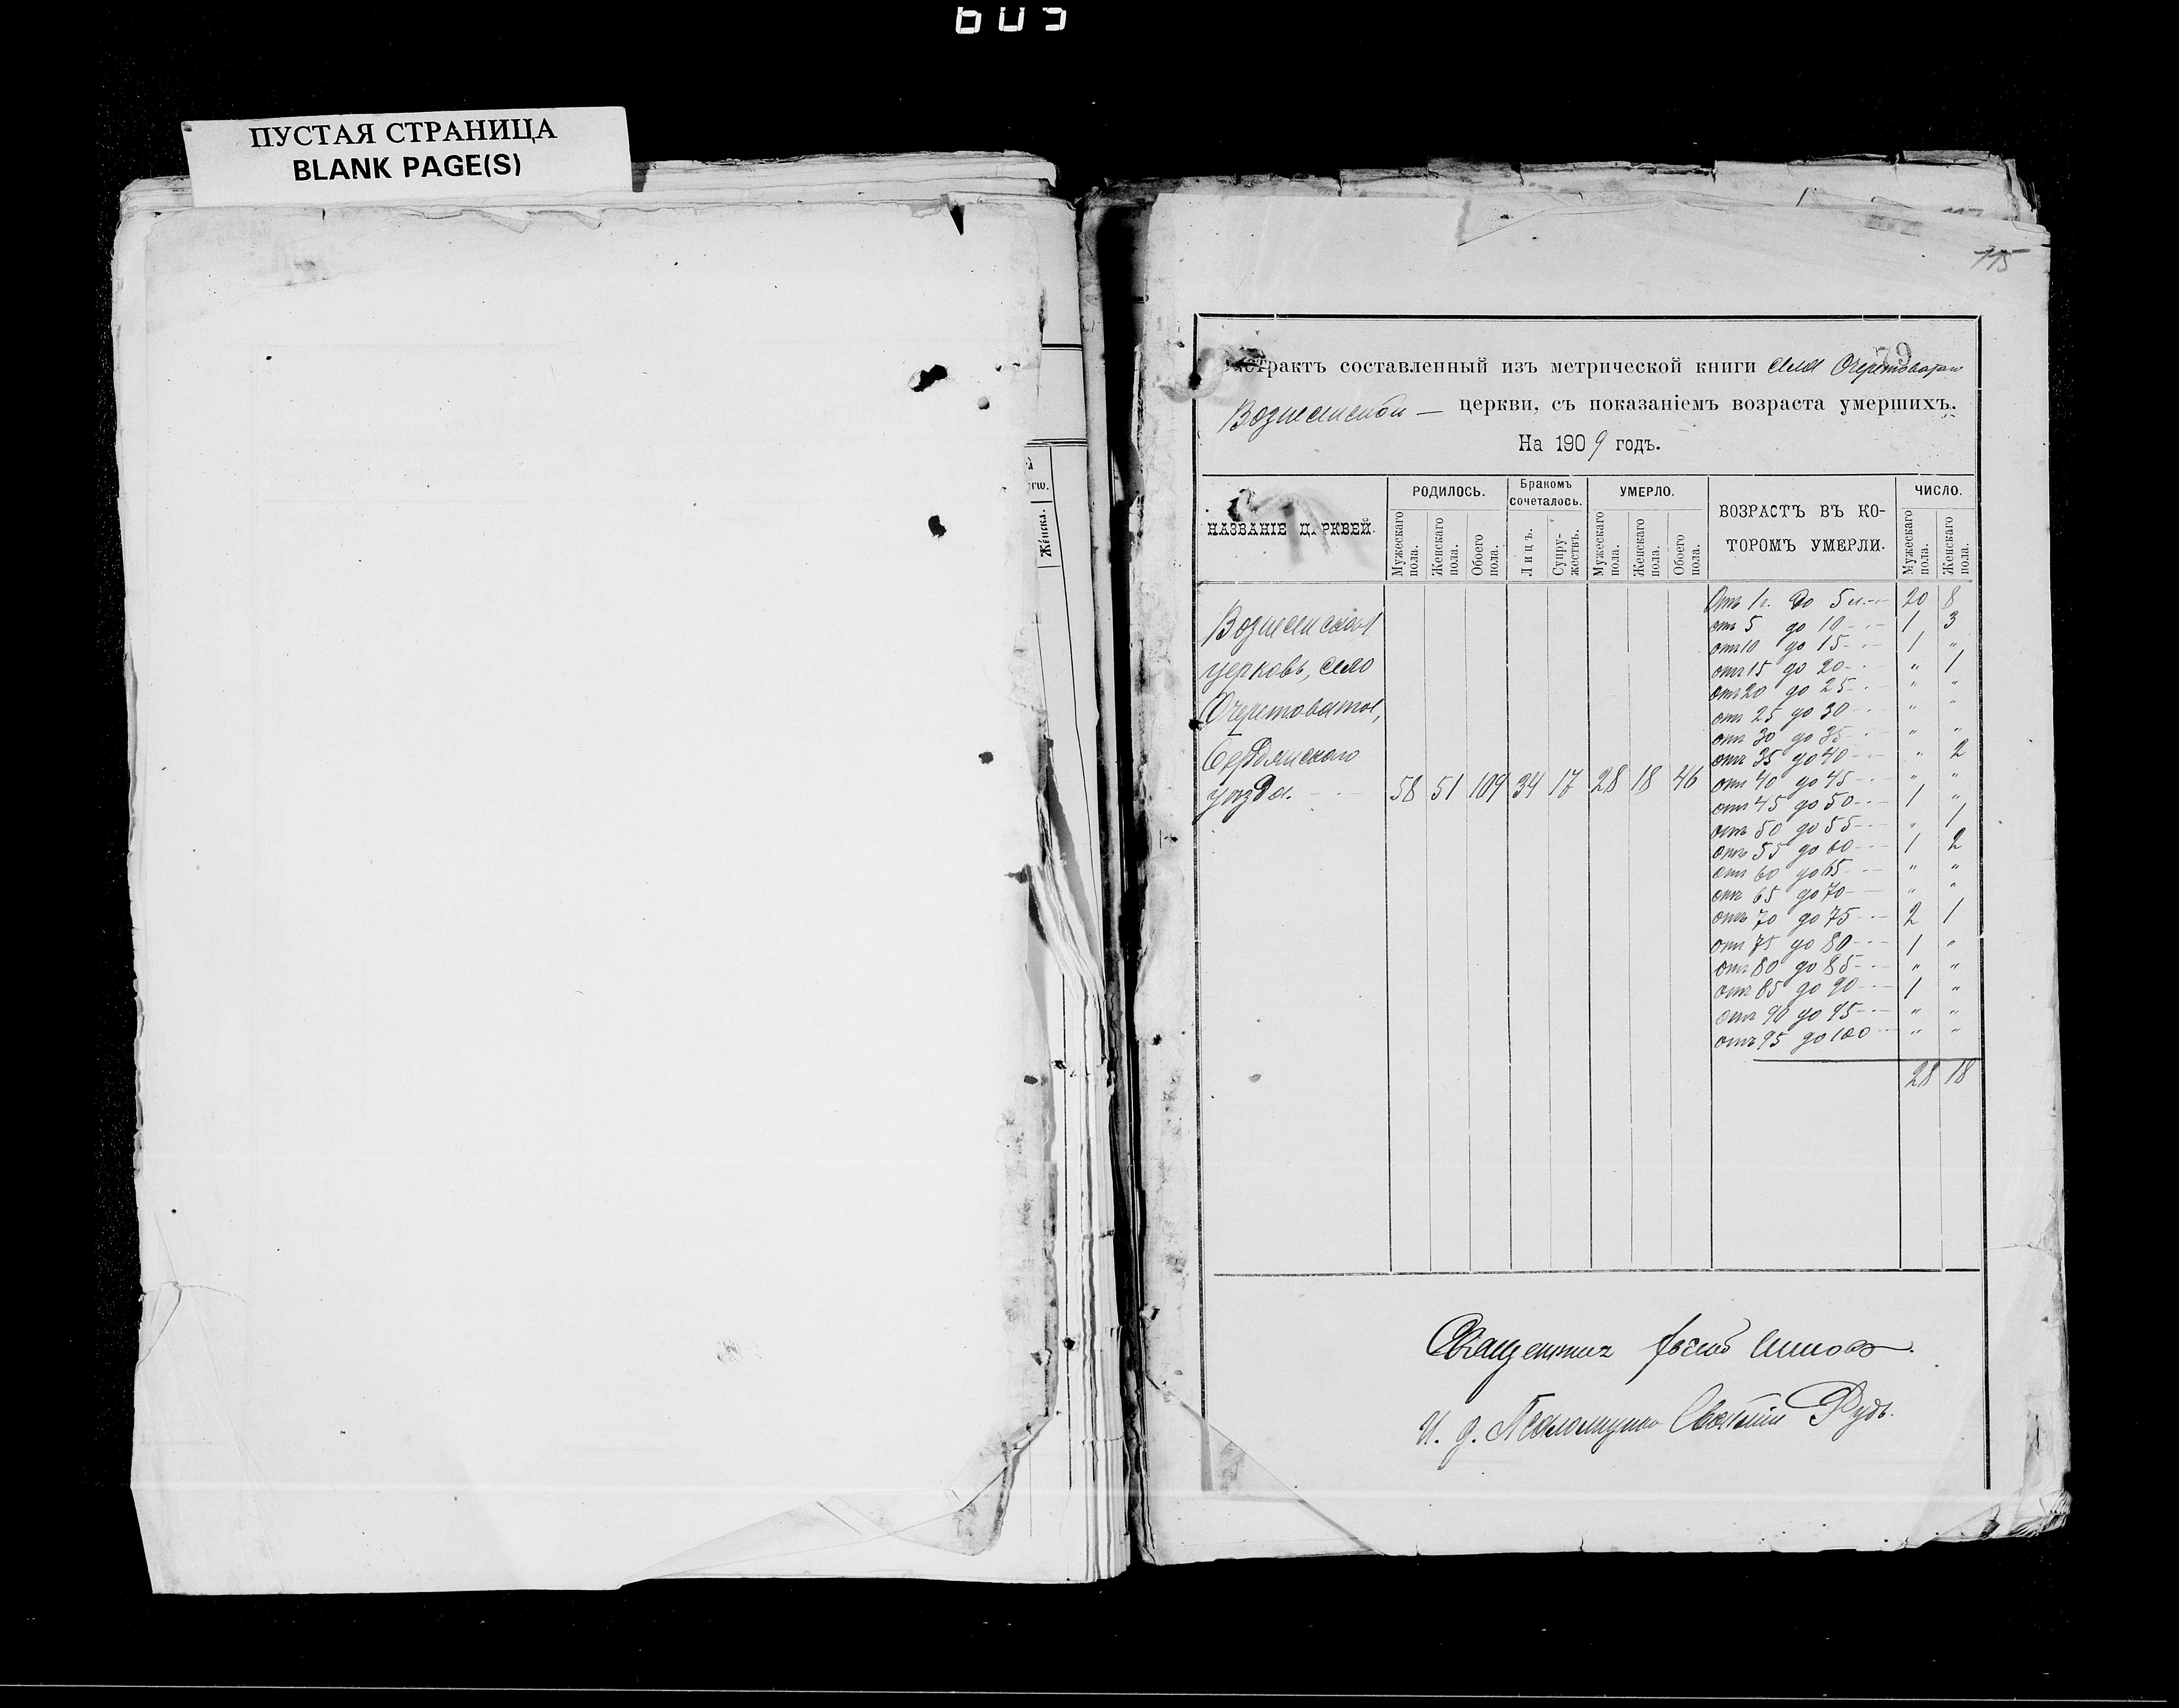 609
ПУСТАЯ СТРАНИЦА
BLANK PAGE(S)
Женск.
115
79
Экстрактъ составленный изъ метрической книги села Очеретоватаго
Вознесенской — церкви, съ показаніемъ возраста умершихъ.
На 1909 годъ.
НАЗВАНІЕ Ц РКВЕЙ.
РОДИЛОСЬ.
Мужескаго пола.
Женскаго пола.
Обоего пола.
Бракомъ сочеталось.
Лицъ.
Супру-жествъ.
УМЕРЛО.
Мужескаго пола.
Женскаго пола.
Обоего пола.
ВОЗРАСТЪ ВЪ КО-
ТОРОМЪ УМЕРЛИ.
ЧИСЛО.
Мужескаго пола.
Женскаго пола.
Вознесенская
церковь, село
Очеретоватое,
Бердянскаго
уѣзда. 58 51 109 34 17 28 18 46
Отъ 1 г. до 5 л. 20 8
отъ 5 до 10 1 3
отъ 10 до 15 1 "
отъ 15 до 20 " 1
отъ 20 до 25 " "
отъ 25 до 30 " "
отъ 30 до 35 " "
отъ 35 до 40 " 2
отъ 40 до 45 " "
отъ 45 до 50 1 "
отъ 50 до 55 " 1
отъ 55 до 60 1 2
отъ 60 до 65 " "
отъ 65 до 70 " "
отъ 70 до 75 2 1
отъ 75 до 80 1 "
отъ 80 до 85 " "
отъ 85 до 90 1 "
отъ 90 до 95 " "
отъ 95 до 100 " "
28 18
Священникъ
И. д. Псаломщика Евгеній Рудь.